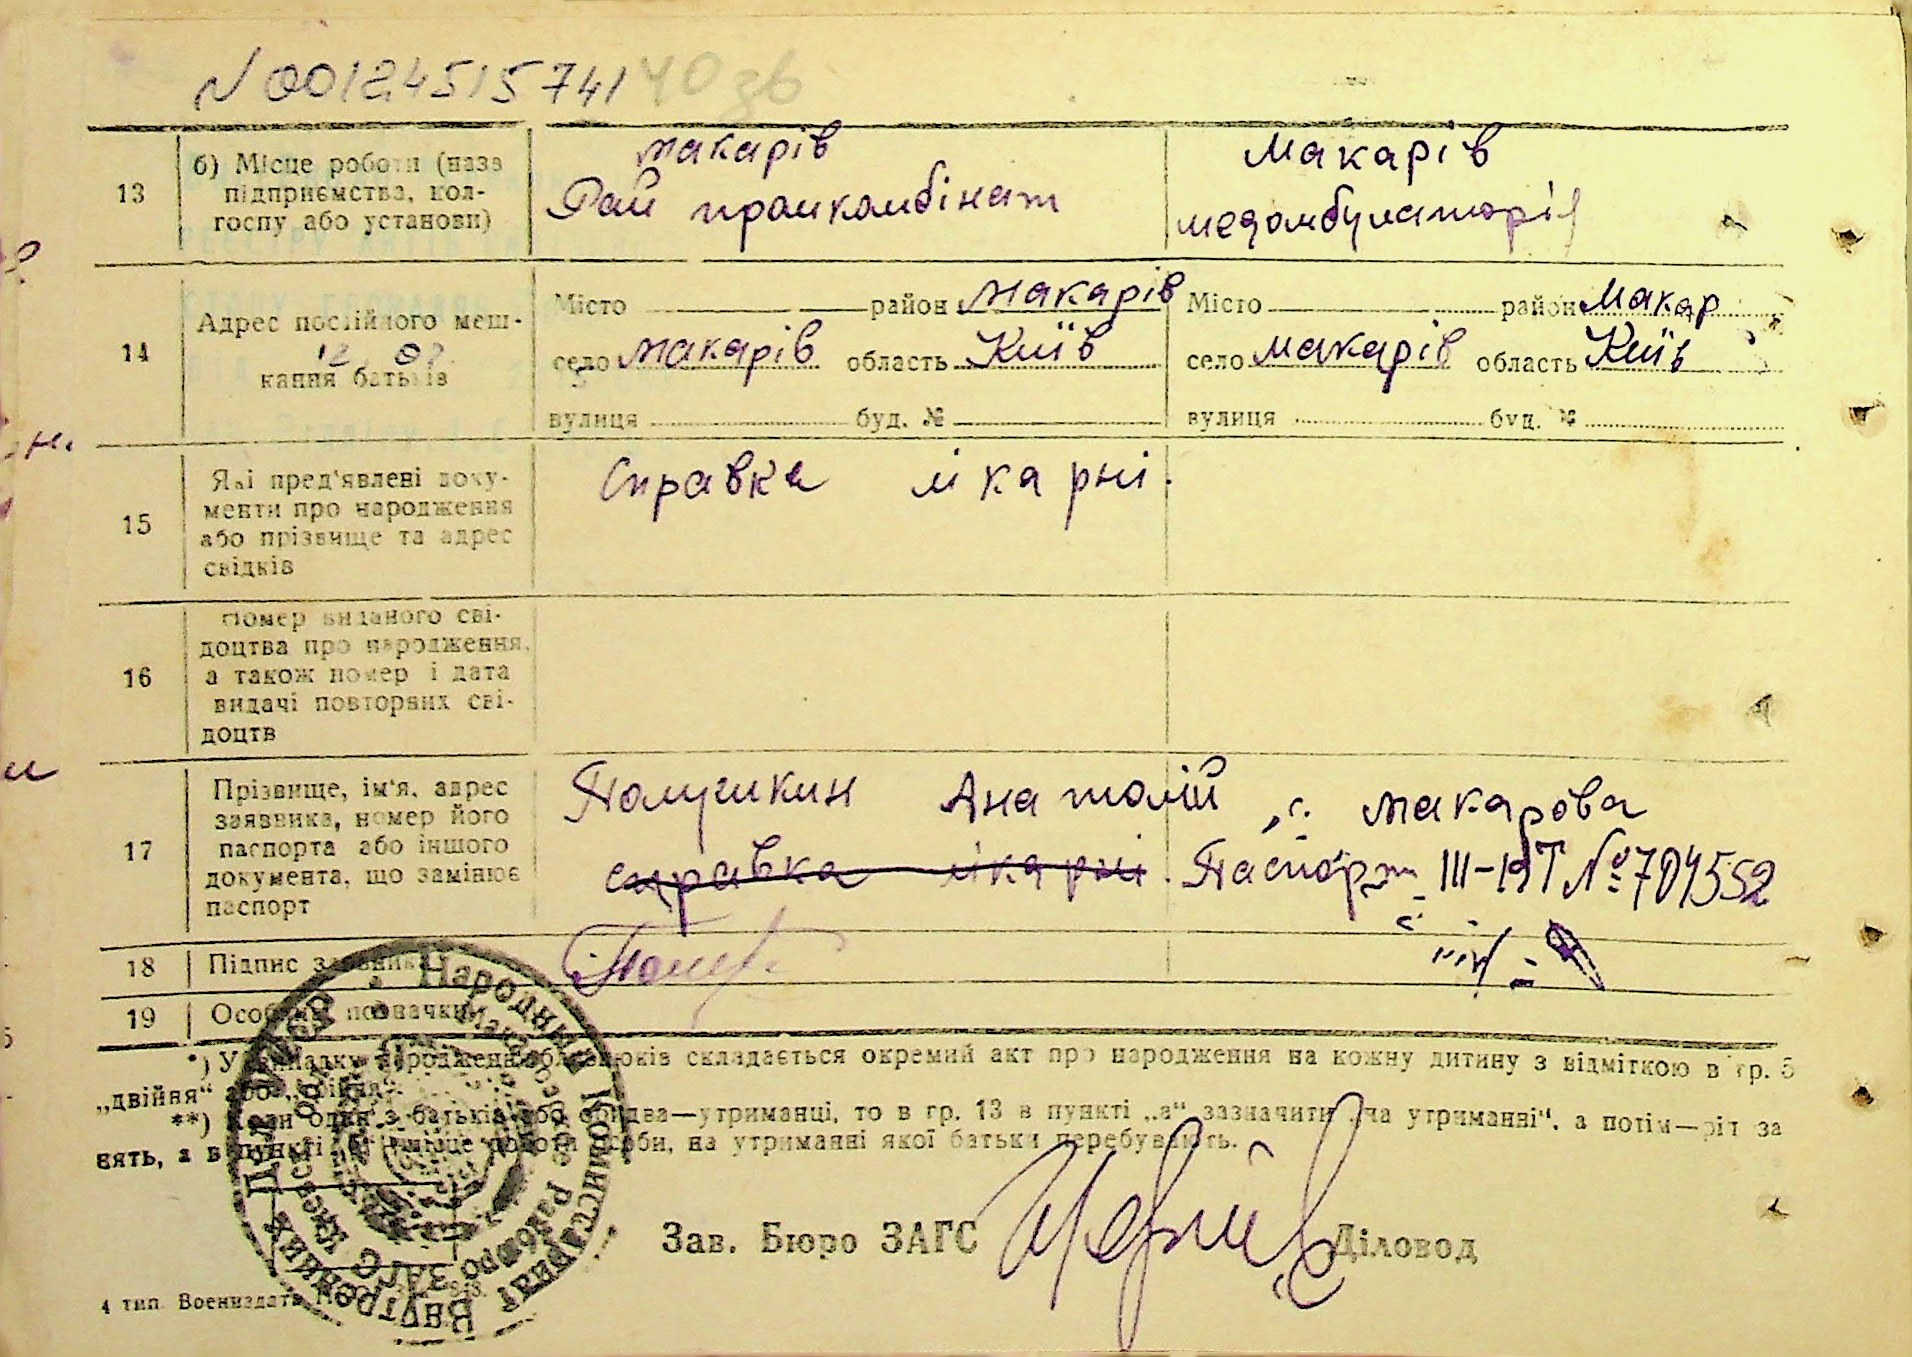 N 00124515741 40 зв
13
б) Місце роботи (назв
підприємства, кол-
госпу або установи)
макарів
Рай промкомбінат
Макарів
медомбулаторія
14
Адрес постійного меш-
кання батьків
Місто район Макарів
село макарів область Київ
вулиця буд. №
Місто район Макар
село макарів область Київ
вулиця буд. №
15
Які пред'явлені доку-
менти про народження
або прізвище та адрес
свідків
Справка лікарні.
16
Номер виданого сві-
доцтва про народження,
а також номер і дата
видачі повторних сві-
доцтв
17
Прізвище, ім'я, адрес
заявника, номер його
паспорта або іншого
документа, що замінює
паспорт
Полушкин Анатолій, с. Макарова
справка лікарні. Паспорт III-ЯТ № 704552
18
Підпис заявника
19
Особливі позначки
*) У випадку народження близнюків складається окремий акт про народження на кожну дитину з відміткою в гр. 5
„двійня“ або „трійня“.
**) Коли один з батьків або обидва—утриманці, то в гр. 13 в пункті „а“ зазначити „на утриманні“, а потім—рід за
нять, а в пункті „б“ місце роботи особи, на утриманні якої батьки перебувають.
Народный Комиссариат Внутренних Дел УССР
Макаровское Райбюро ЗАГС Киевской обл.
Зав. Бюро ЗАГС
Діловод
4 тип. Воениздата